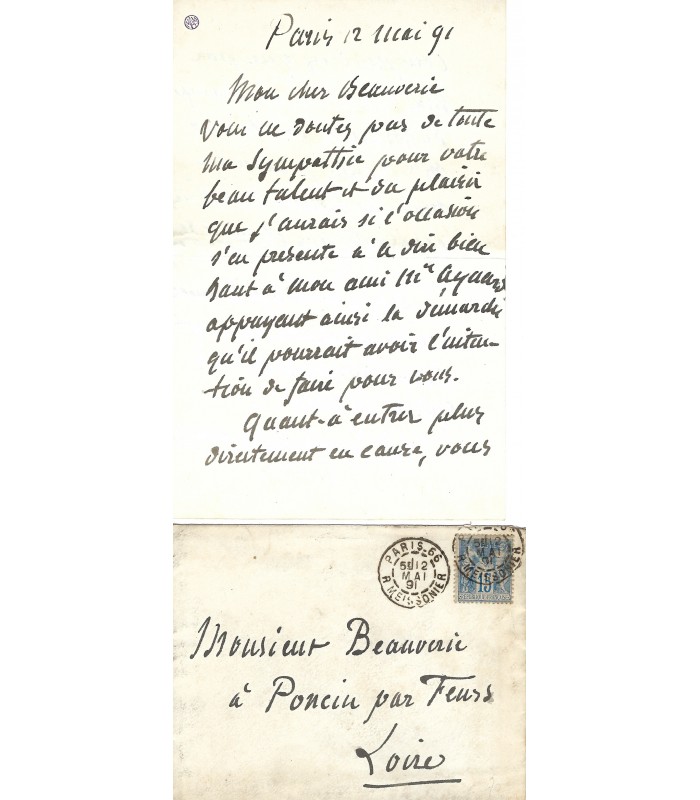 Paris 12 Mai 91
Mon cher Beauverie
Vous ne doutez pas de toute
ma Sympathie pour votre
beau talent et du plaisir
que j'aurais si l'occasion
s'en presente à le dire bien
haut à mon ami Mr Aynard
appuyant ainsi la démarche
qu'il pourrait avoir l'inten-
tion de faire pour vous.
Quant-à entrer plus
directement en cause, vous
PARIS-66
12
MAI
91
R. MEISSONIER
12
MAI
91
R. MEISSONIER
15
Monsieur Beauverie
à Poncin par Feurs
Loire